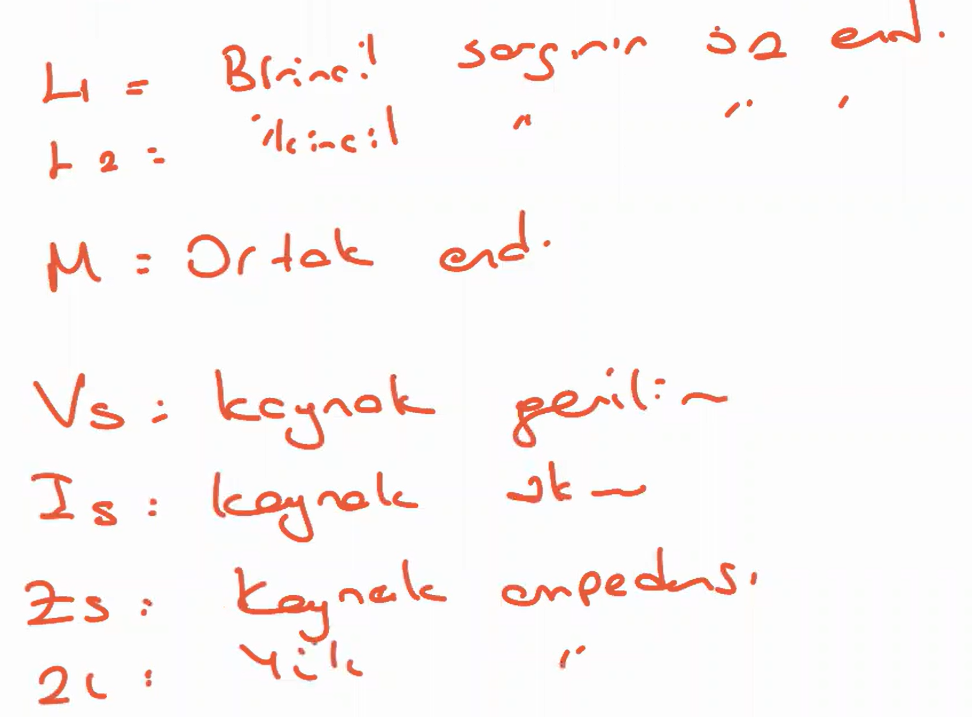 L1 = Birincil sargının öz end.
L2 = İkincil " " "
M = Ortak end.
Vs : kaynak gerilim
Is : kaynak akım
Zs : kaynak empedansı
ZL : Yük "